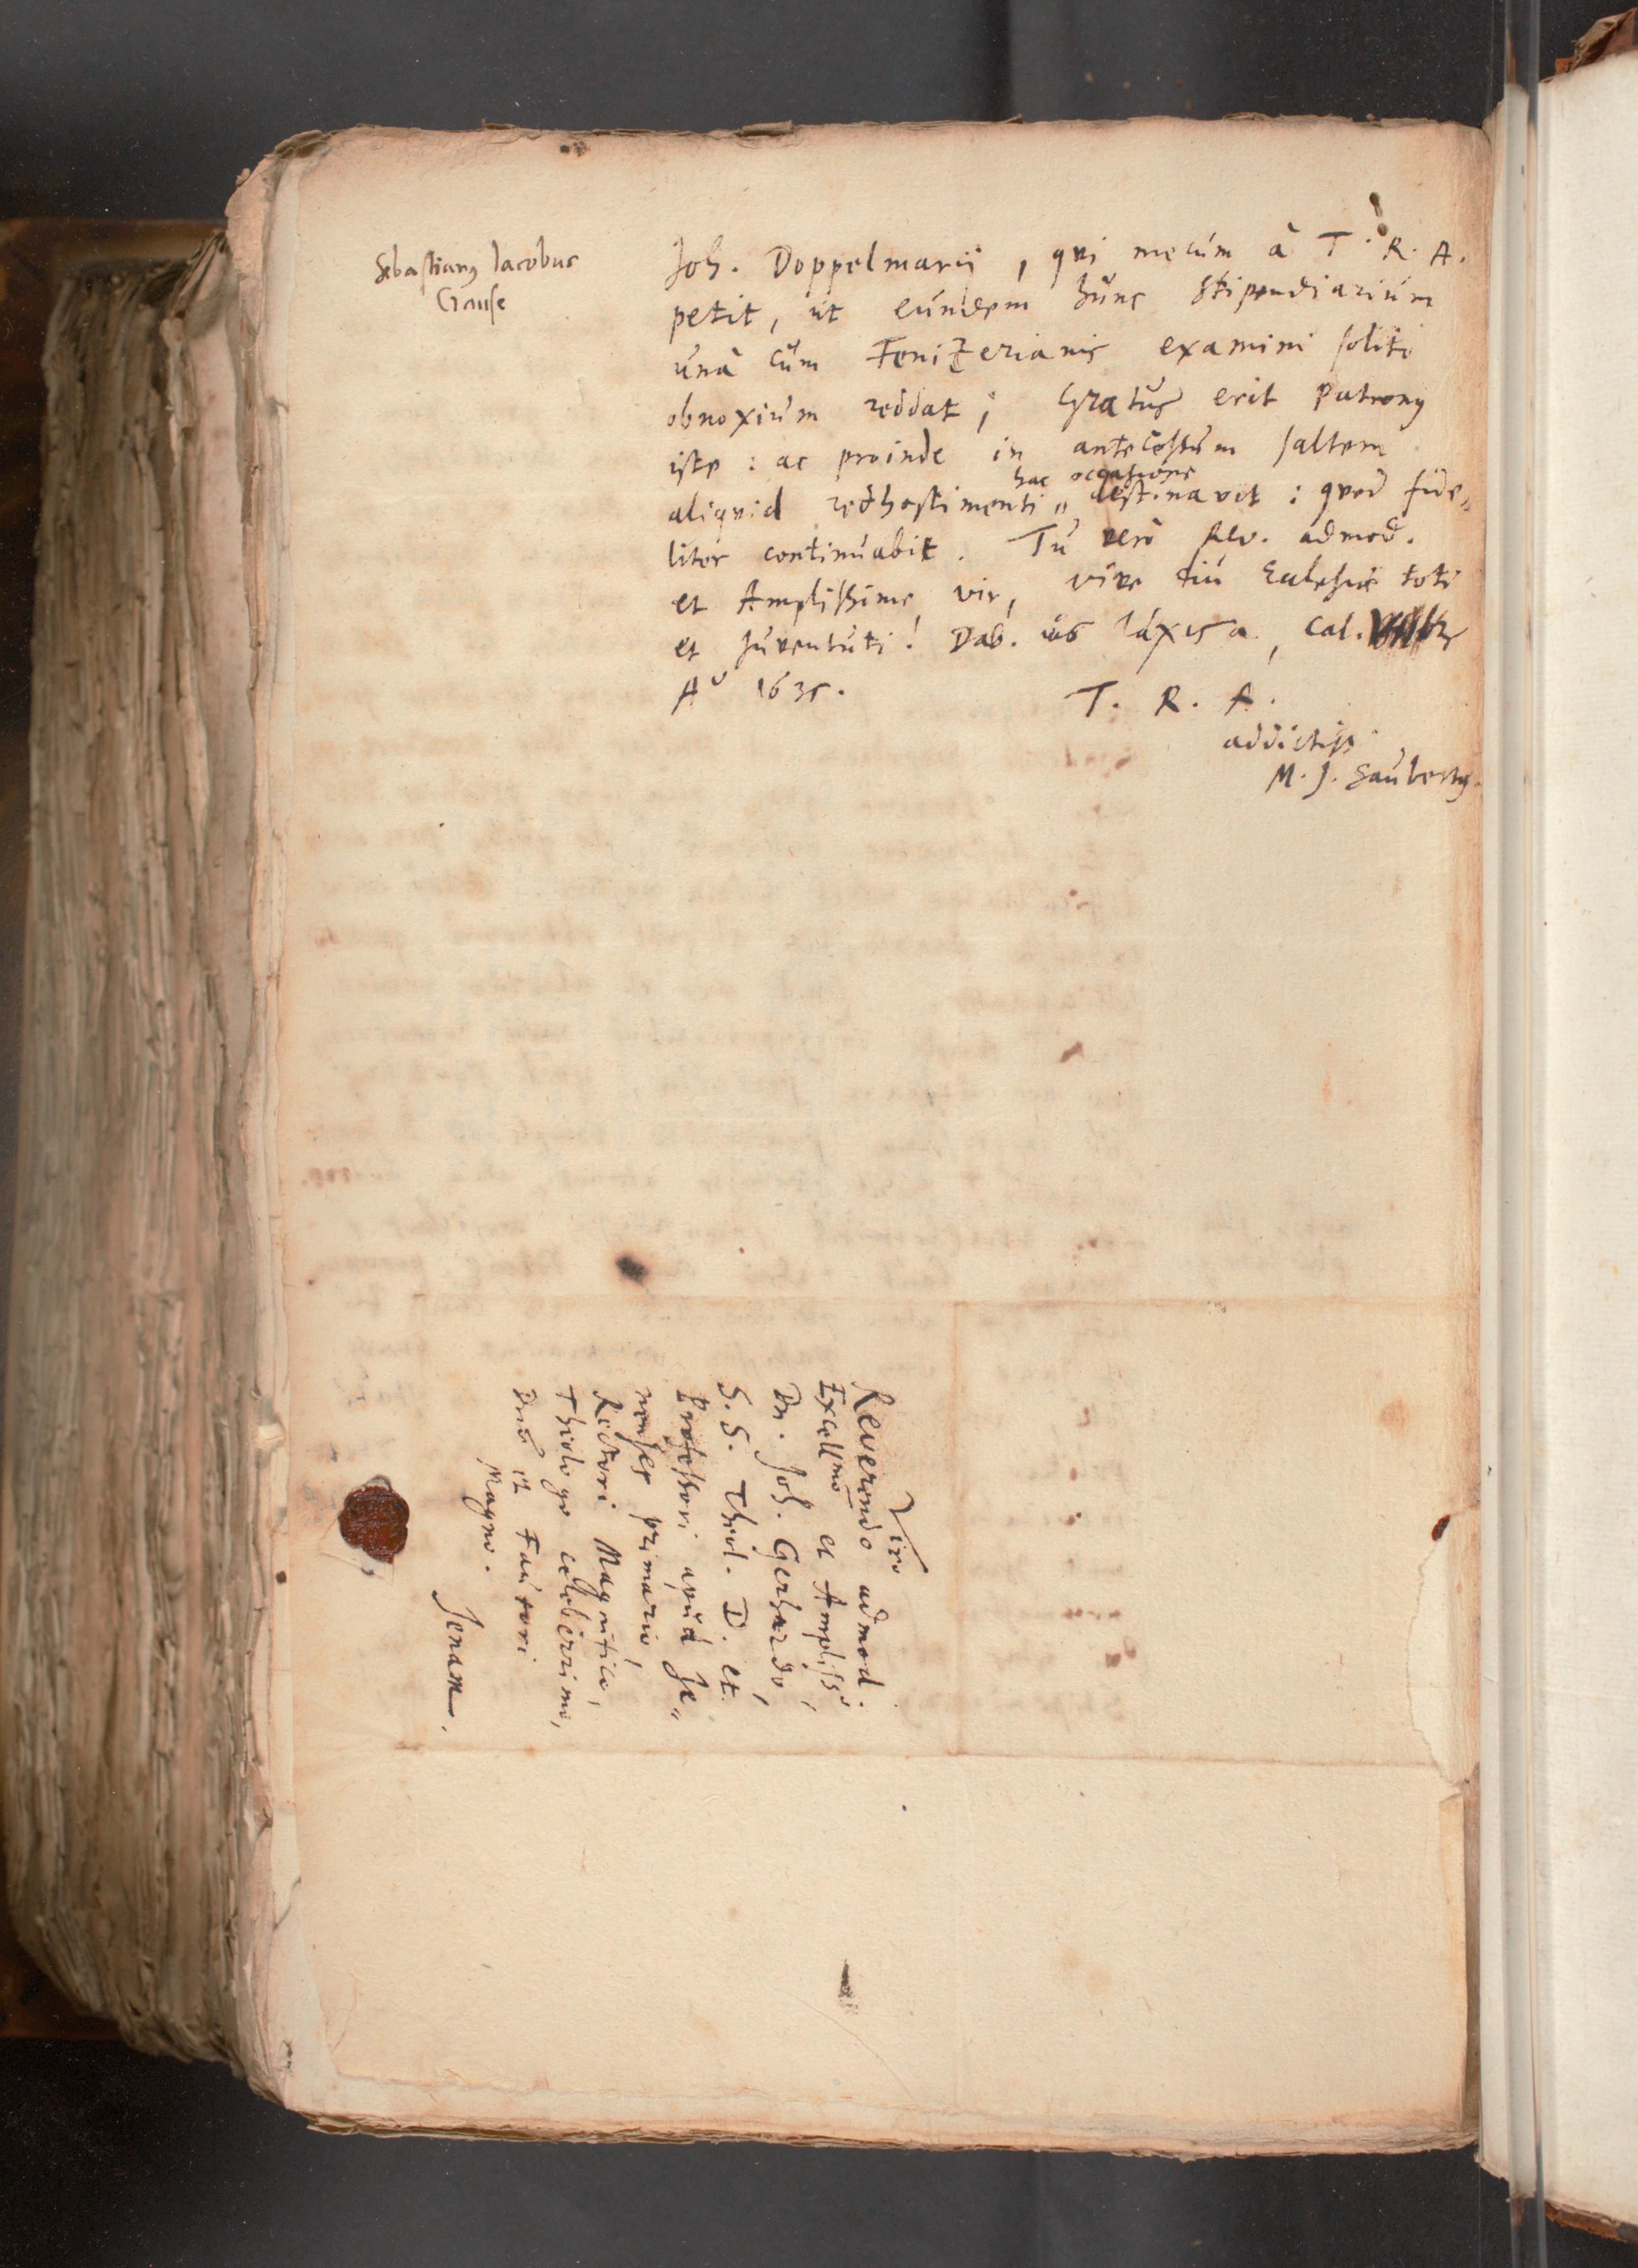 Sebastianus Iacobus
Crause
Joh. Doppelmarii, qui mecum à T. R. A.
petit, ut eundem hunc stipendiarium
unà cum Fenizerianis examini solito
obnoxium reddat; Gratus erit Patronus
iste: ac proinde in antecessum saltem
hac occasione
aliquid redhostimenti destinavit: quod fide„
liter continuabit. Tu verò Rev. admod.
et Amplissime vir, vive diu Ecclesiae toti
et Juventuti! Dab. Cal.
A° 1635.
T. R. A.
addictiss.
M. J. Saubertus.
Viro
Reverendo admod.
Excellmo et Ampliss°,
Dn. Joh. Gerhardo,
S. S. Theol. D. et
Professori apud Je„
nenses primario,
Rectori Magnifico,
Theologo celeberrimo,
Dno et Fautori
Magno.
Jenam.